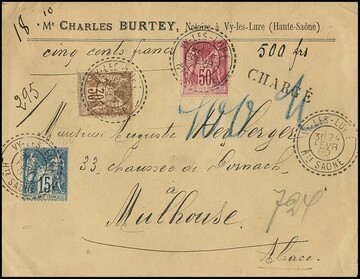 18 10
Me CHARLES BURTEY, Notaire à Vy-les-Lure (Haute-Saône)
cinq cents francs 500 frs
VY-LES-LURE
50
CHARGÉ
30
295
Monsieur Auguste Weisberger
VY-LES-LURE
HTE SAONE
33, chaussée de Dornach
15
à
Mulhouse
724
Alsace